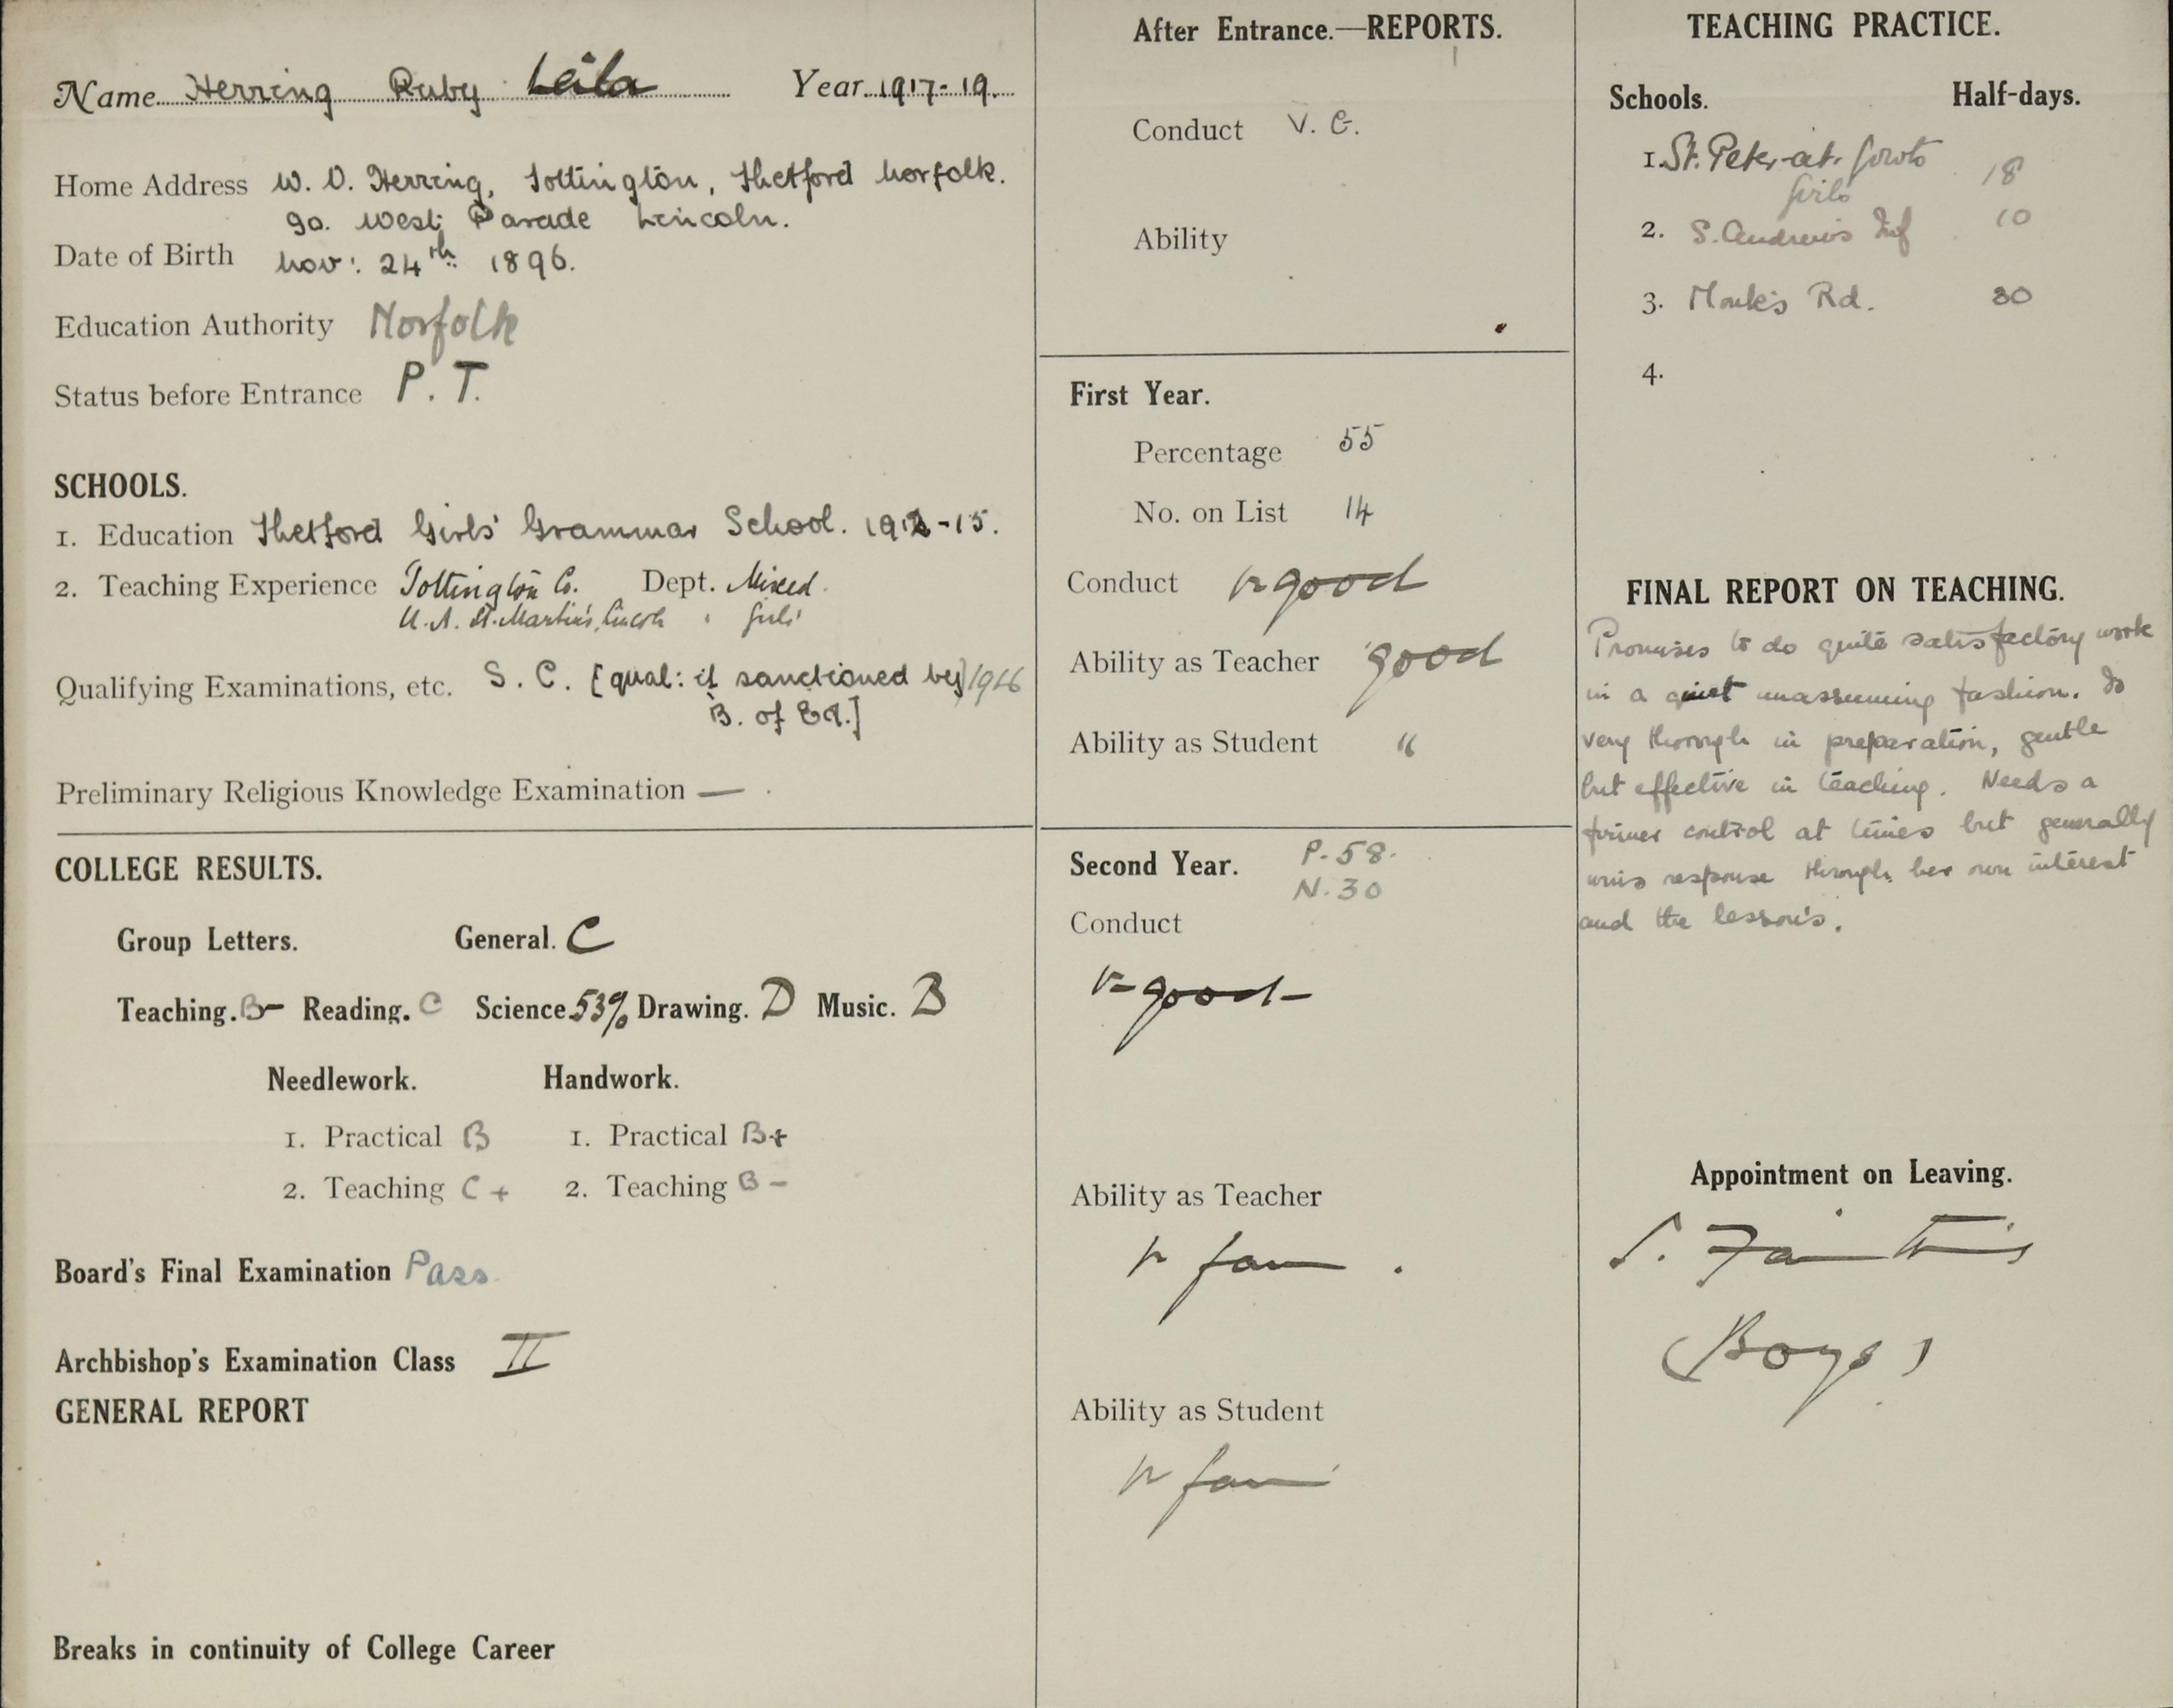 Name Herring Ruby Leila Year 1917-19.
Home Address W. O. Herring, Tottington, Thetford Norfolk.
90. West Parade Lincoln.
Date of Birth Nov: 24th 1896.
Education Authority Norfolk
Status before Entrance P. T.
SCHOOLS.
1. Education Thetford Girls' Grammar School. 1912-15.
2. Teaching Experience Tottington C. Dept. Mixed.
U.A. St. Martin's, Lincoln " Girls'
Qualifying Examinations, etc. S. C. [qual: if sanctioned by] 1916
B. of Ed.]
Preliminary Religious Knowledge Examination —
COLLEGE RESULTS.
Group Letters. General. C
Teaching. B- Reading. C Science 53% Drawing. D Music. B
Needlework. Handwork.
1. Practical B 1. Practical B+
2. Teaching C+ 2. Teaching B-
Board's Final Examination Pass
Archbishop's Examination Class II
GENERAL REPORT
Breaks in continuity of College Career
After Entrance.—REPORTS.
Conduct V. G.
Ability
First Year.
Percentage 55
No. on List 14
Conduct v good
Ability as Teacher good
Ability as Student "
Second Year. P. 58.
N. 30
Conduct
v-good-
Ability as Teacher
v fair.
Ability as Student
v fair
TEACHING PRACTICE.
Schools. Half-days.
1. St. Peter-at-Gowts
Girls 18
2. S. Andrew's Inf 10
3. Monk's Rd. 30
4.
FINAL REPORT ON TEACHING.
Promises to do quite satisfactory work
in a quiet unassuming fashion. Is
very thorough in preparation, gentle
but effective in teaching. Needs a
firmer control at times but generally
wins response through her own interest
and the lessons.
Appointment on Leaving.
S. Faith's
(Boys)